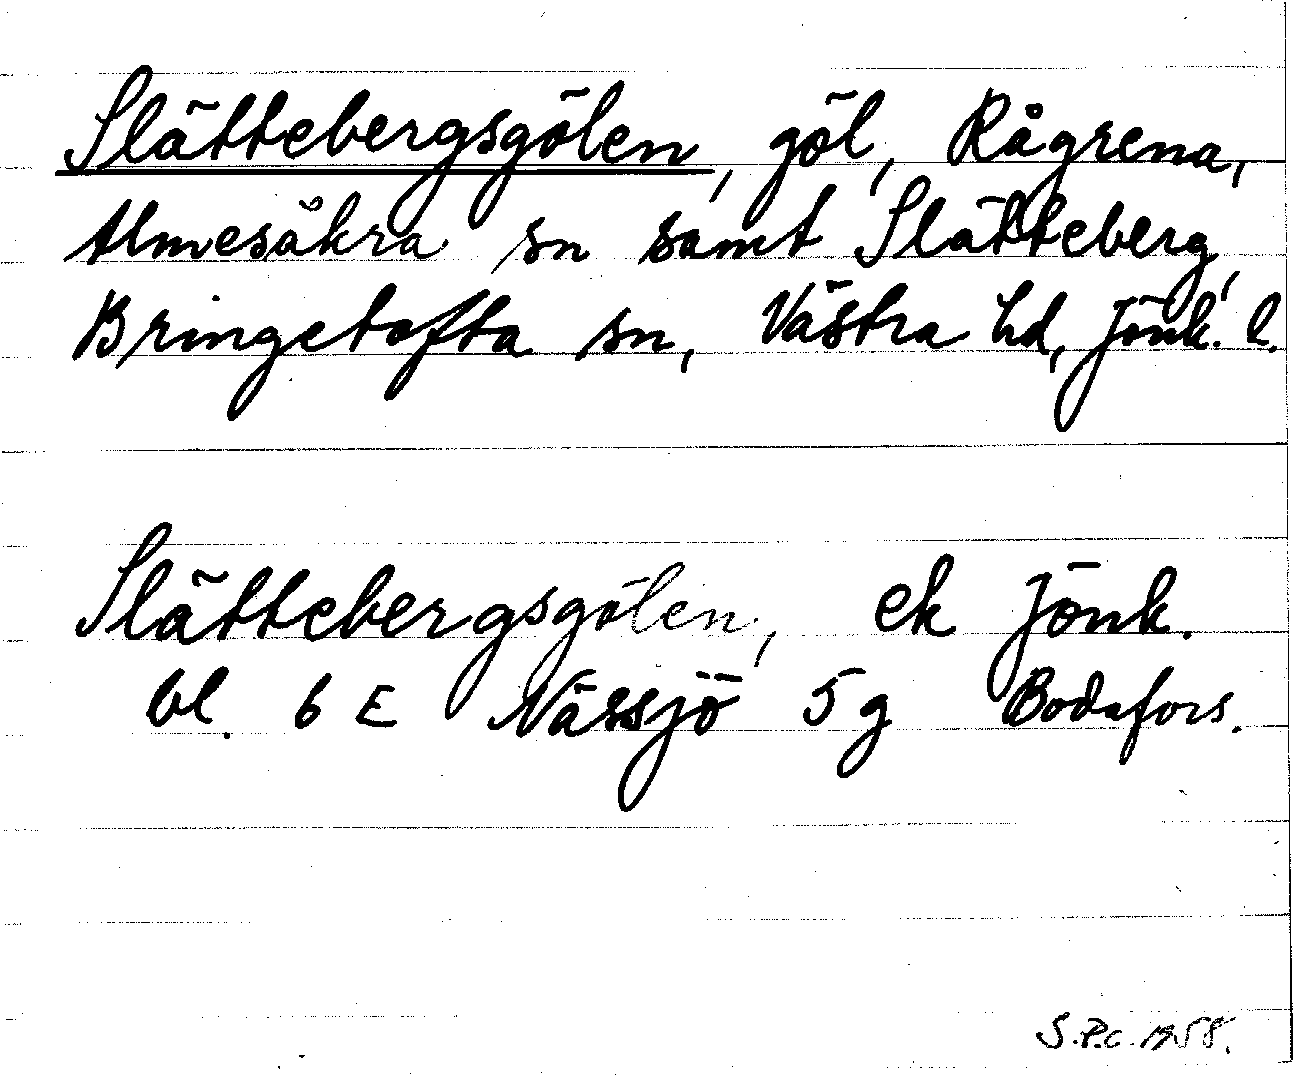 Slättebergsgölen, göl, Rågrena,
Almesåkra sn samt Slätteberg,
Bringetofta sn, Västra hd, Jönk. l.
Slättebergsgölen, ek Jönk.
bl. 6 E Nässjö 5 g Bodafors.
S.P.C. 1958.